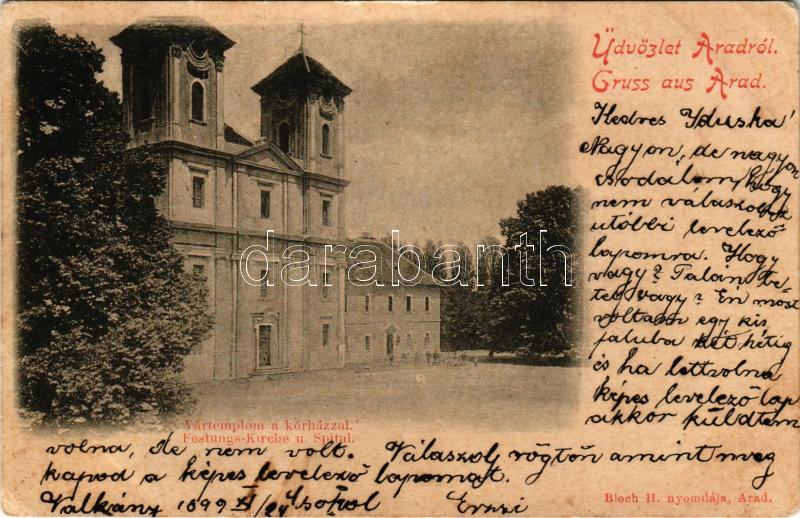 Üdvözlet Aradról.
Gruss aus Arad.
Kedves Yduska!
Nagyon, de nagyon
csodálom, hogy
nem válaszolsz
utóbbi levelező
lapomra. Hogy
vagy? Talán be-
teg vagy? Én most
voltam egy kis
faluba két hétig
és ha lett volna
képes levelező lap
akkor küldtem
volna, de nem volt. Válaszolj rögtön amint meg
kapod a képes levelező lapomat.
Valkány 1899 Erzsi
Vártemplom a kórházzal.
Festungs-Kirche u. Spital.
Bloch H. nyomdája, Arad.
darabanth